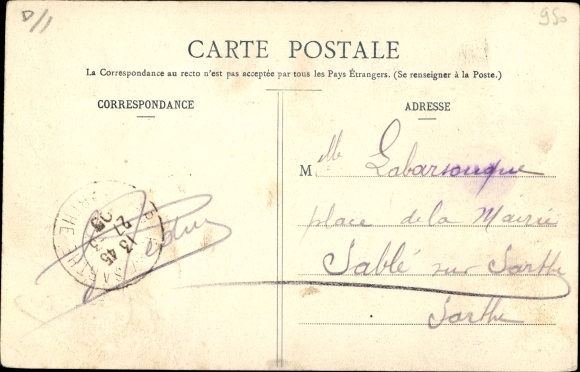 D/1
950
CARTE POSTALE
La Correspondance au recto n'est pas acceptée par tous les Pays Étrangers. (Se renseigner à la Poste.)
CORRESPONDANCE
ADRESSE
Mlle Labarsouque
place de la Mairie
Sablé sur Sarthe
Sarthe
13 45